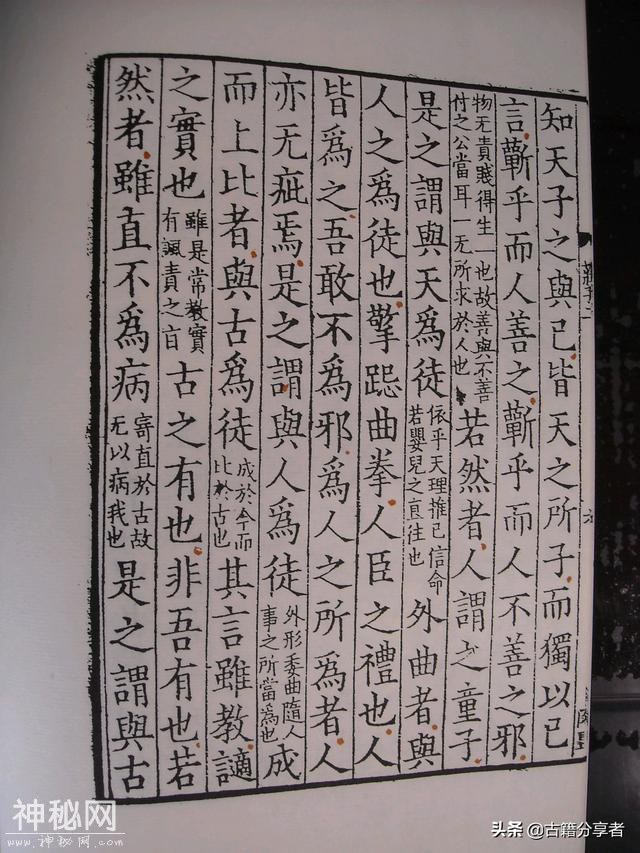 知天子之與己皆天之所子而獨以己
言蘄乎而人善之蘄乎而人不善之邪
物无貴賤得生一也故善與不善付之公當耳一无所求於人也若然者人謂之童子
是之謂與天爲徒依乎天理推己信命若嬰兒之直往也外曲者與
人之爲徒也擎跽曲拳人臣之禮也人
皆爲之吾敢不爲邪爲人之所爲者人
亦无疵焉是之謂與人爲徒外形委曲隨人事之所當爲也成
而上比者與古爲徒成於今而比於古也其言雖教讁
之實也雖是常教實有諷責之旨古之有也非吾有也若
然者雖直不爲病寄直於古故无以病我也是之謂與古
神秘网
www.神秘网.com
头条 @古籍分享者